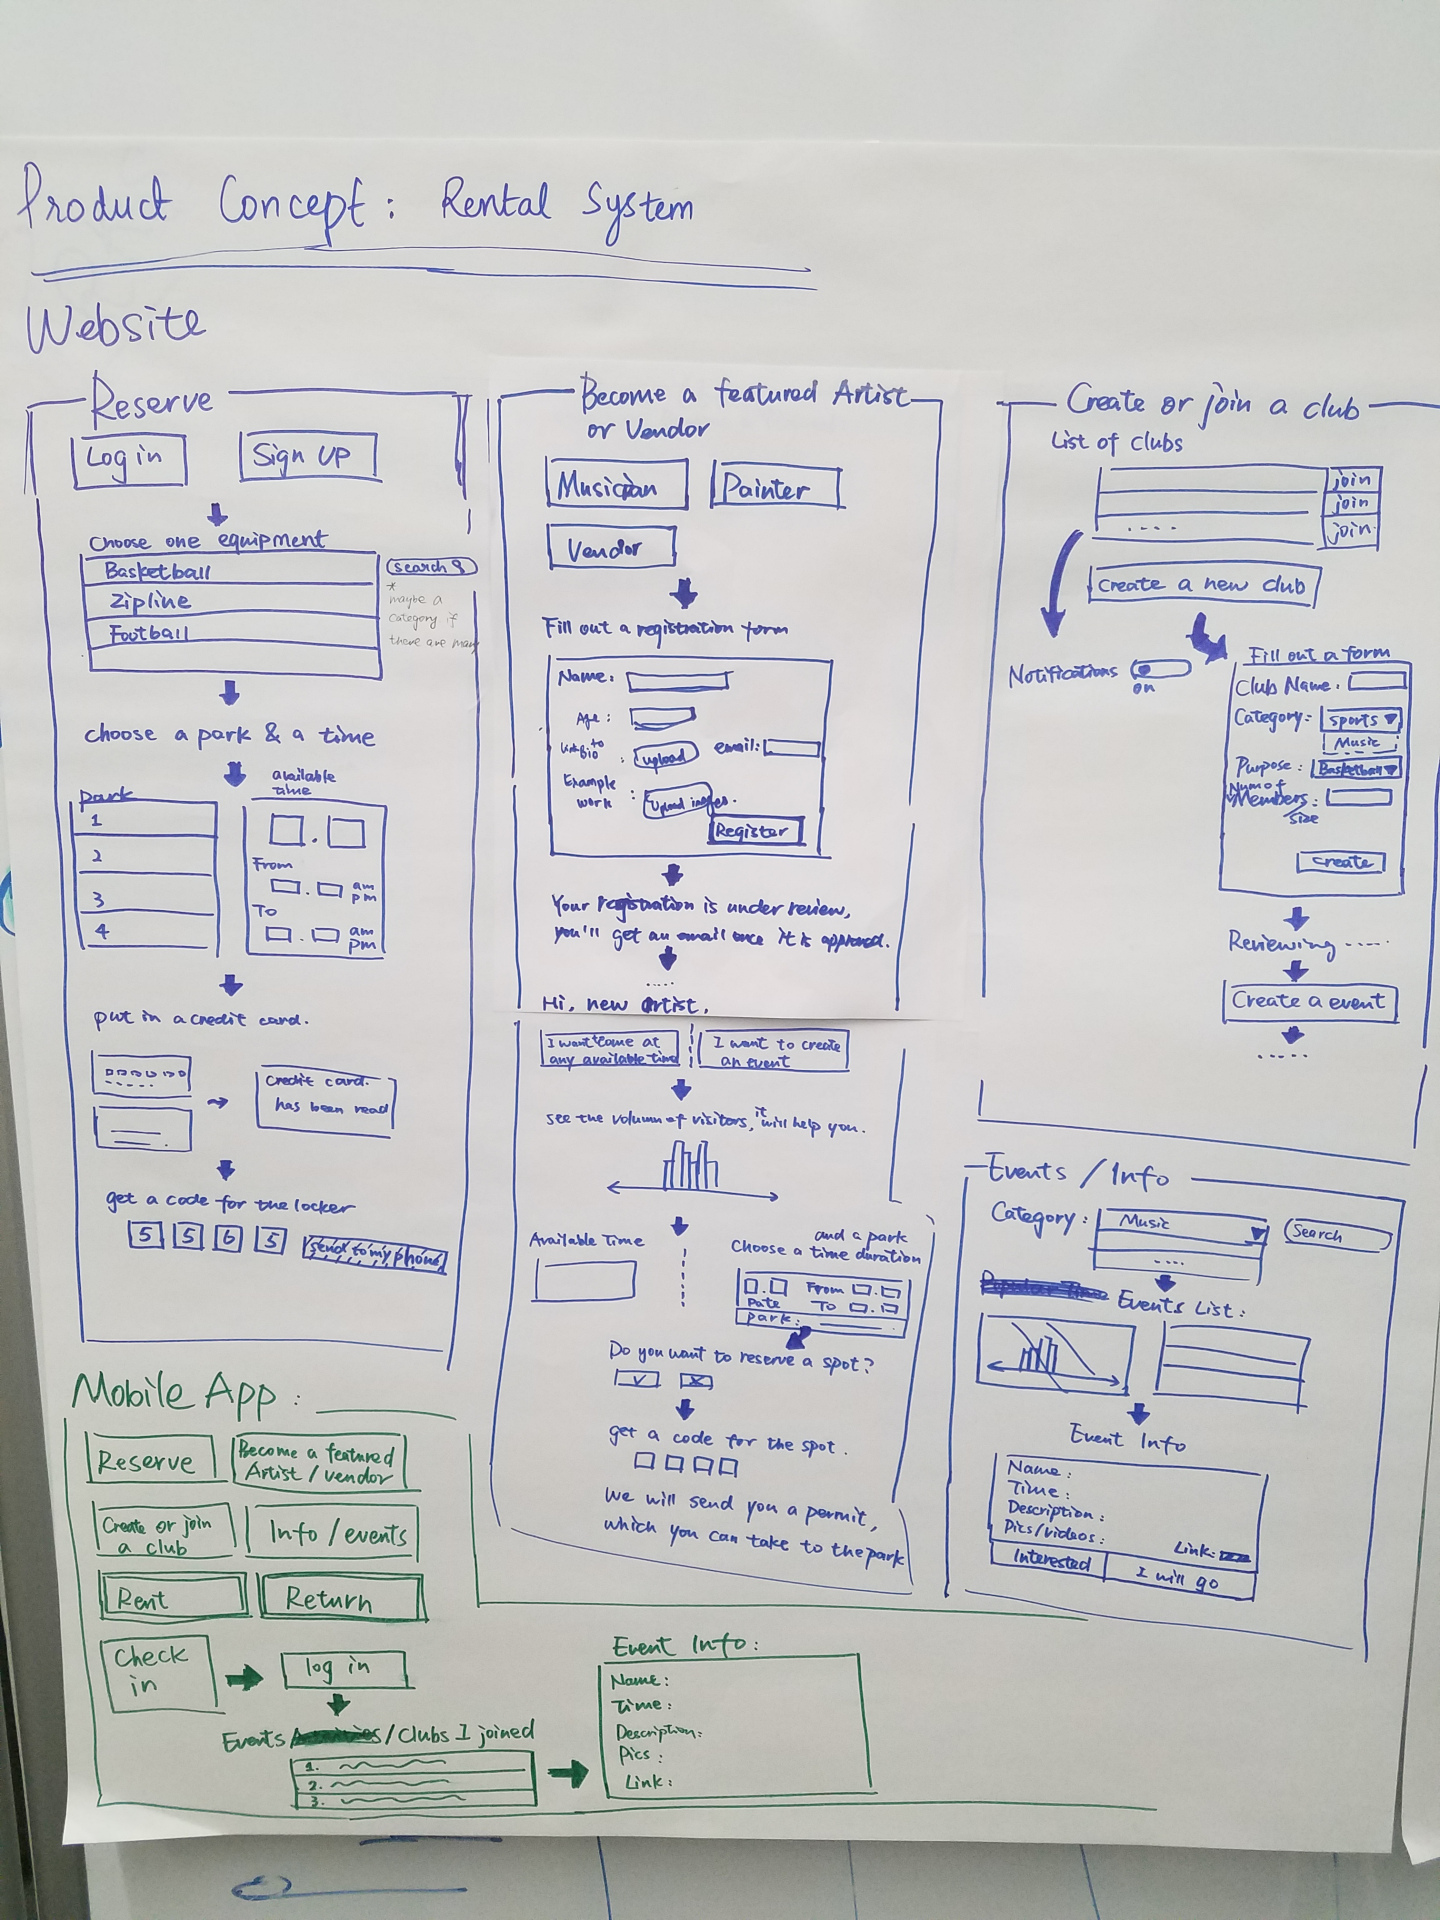 Product Concept: Rental System
Website
Reserve
Log in
Sign up
Choose one equipment
Basketball
search
Zipline
Football
*
maybe a
category if
there are many
choose a park & a time
available
time
park
1
2
3
4
From
am
pm
To
am
pm
put in a credit card.
credit card.
has been read
get a code for the locker
5 5 6 5
send to my phone
Become a featured Artist
or Vendor
Musician
Painter
Vendor
Fill out a registration form
Name:
Age:
Link to
bio
: upload
email:
Example
work
: Upload images.
Register
Your registration is under review,
you'll get an email once it is approved.
.....
Hi, new artist,
I want come at
any available time
I want to create
an event
see the volumn of visitors, it will help you.
Available Time
and a park
Choose a time duration
From
Date
To
park:
Do you want to reserve a spot?
get a code for the spot.
We will send you a permit,
which you can take to the park
Create or join a club
List of clubs
join
join
....
join
Create a new club
Notifications
on
Fill out a form
Club Name:
Category: sports
Music
Purpose: Basketball
Num of
Members:
/size
create
Reviewing .....
Create a event
.....
Events / Info
Category: Music
Search
....
Events List:
Event Info
Name:
Time:
Description:
Pics/videos:
Link:
Interested
I will go
Mobile App:
Reserve
Become a featured
Artist / vendor
Create or join
a club
Info / events
Rent
Return
Check
in
log in
Events / Clubs I joined
1.
2.
3.
Event Info:
Name:
Time:
Description:
Pics:
Link: